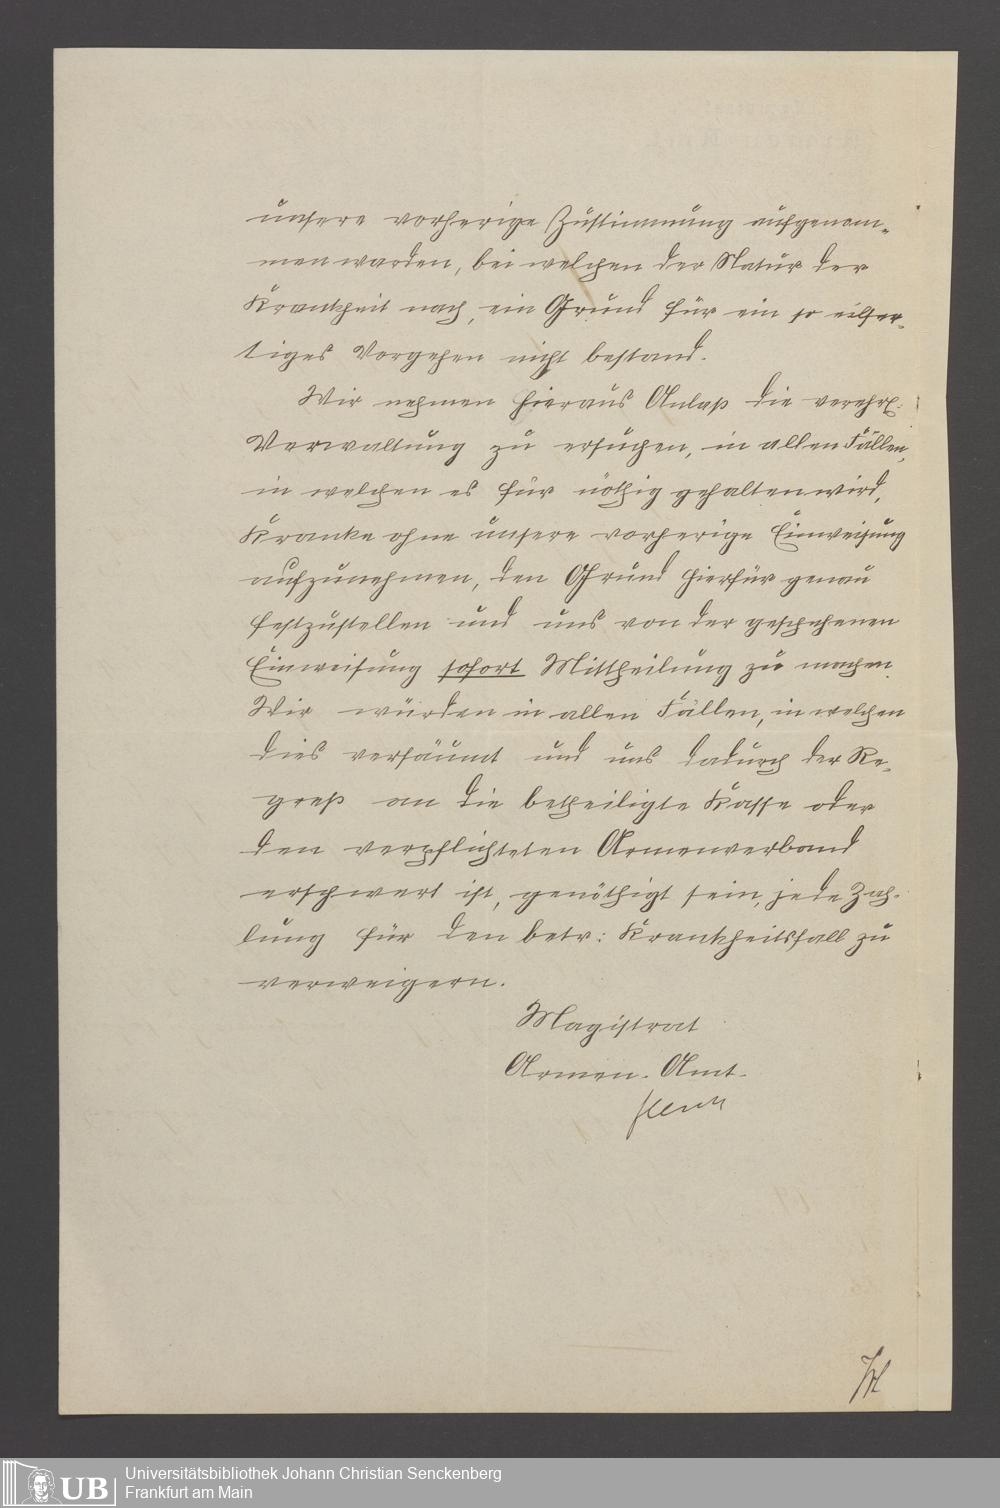 unsere vorherige Zustimmung aufgenom-
men worden, bei welchen der Natur der
Krankheit nach, ein Grund für ein so eilfer-
tiges Vorgehen nicht bestand.
Wir nehmen hieraus Anlaß die verehrl:
Verwaltung zu ersuchen, in allen Fällen,
in welchen es für nöthig gehalten wird,
Kranke ohne unsere vorherige Einweisung
aufzunehmen, den Grund hierfür genau
festzustellen und uns von der geschehenen
Einweisung sofort Mittheilung zu machen.
Wir würden in allen Fällen, in welchen
dies versäumt und uns dadurch der Re-
greß an die betheiligte Kasse oder
den verpflichteten Armenverband
erschwert ist, genöthigt sein, jede Zah-
lung für den betr: Krankheitsfall zu
verweigern.
Magistrat
Armen-Amt.
UB
Universitätsbibliothek Johann Christian Senckenberg
Frankfurt am Main